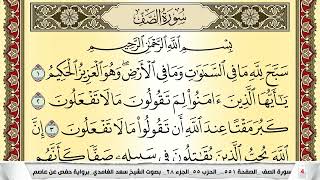 سُورَةُ الصَّفِّ
بِسْمِ اللَّهِ الرَّحْمَٰنِ الرَّحِيمِ
سَبَّحَ لِلَّهِ مَا فِي السَّمَٰوَٰتِ وَمَا فِي الْأَرْضِ ۖ وَهُوَ الْعَزِيزُ الْحَكِيمُ ١
يَٰٓأَيُّهَا الَّذِينَ ءَامَنُوا لِمَ تَقُولُونَ مَا لَا تَفْعَلُونَ ٢
كَبُرَ مَقْتًا عِندَ اللَّهِ أَن تَقُولُوا مَا لَا تَفْعَلُونَ ٣
إِنَّ اللَّهَ يُحِبُّ الَّذِينَ يُقَٰتِلُونَ فِي سَبِيلِهِ صَفًّا كَأَنَّهُم
سورة الصف الصفحة ٥٥١ الحزب ٥٥ الجزء ٢٨ بصوت الشيخ سعد الغامدي برواية حفص عن عاصم 4